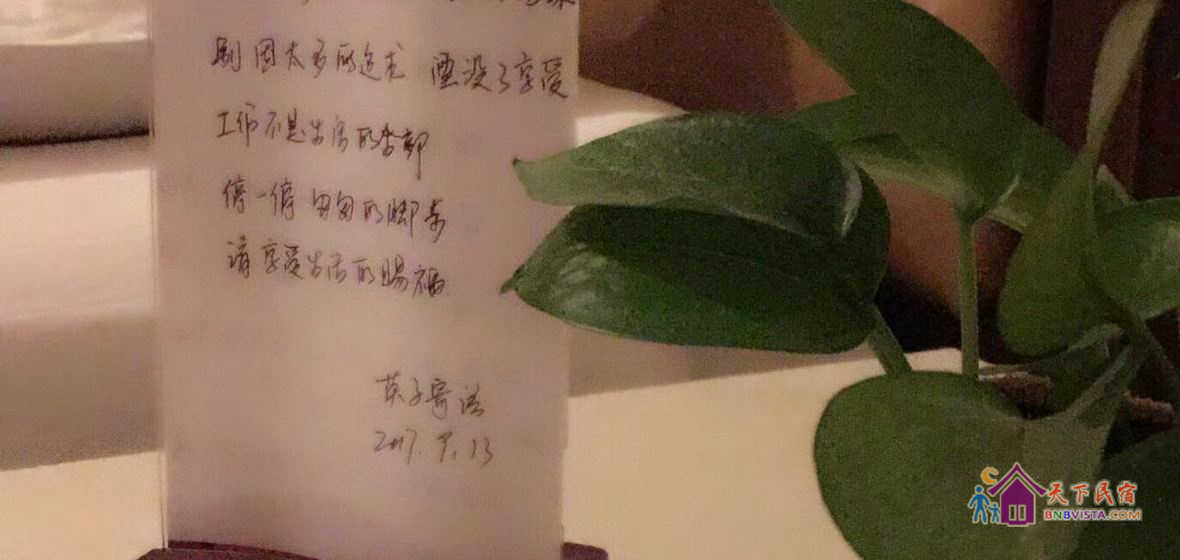 别因太多的追求 湮没了享受
工作不是生活的全部
停一停 匆匆的脚步
请享受生活的赐福
英子寄语
2017.9.13
天下民宿
BNBVISTA.COM